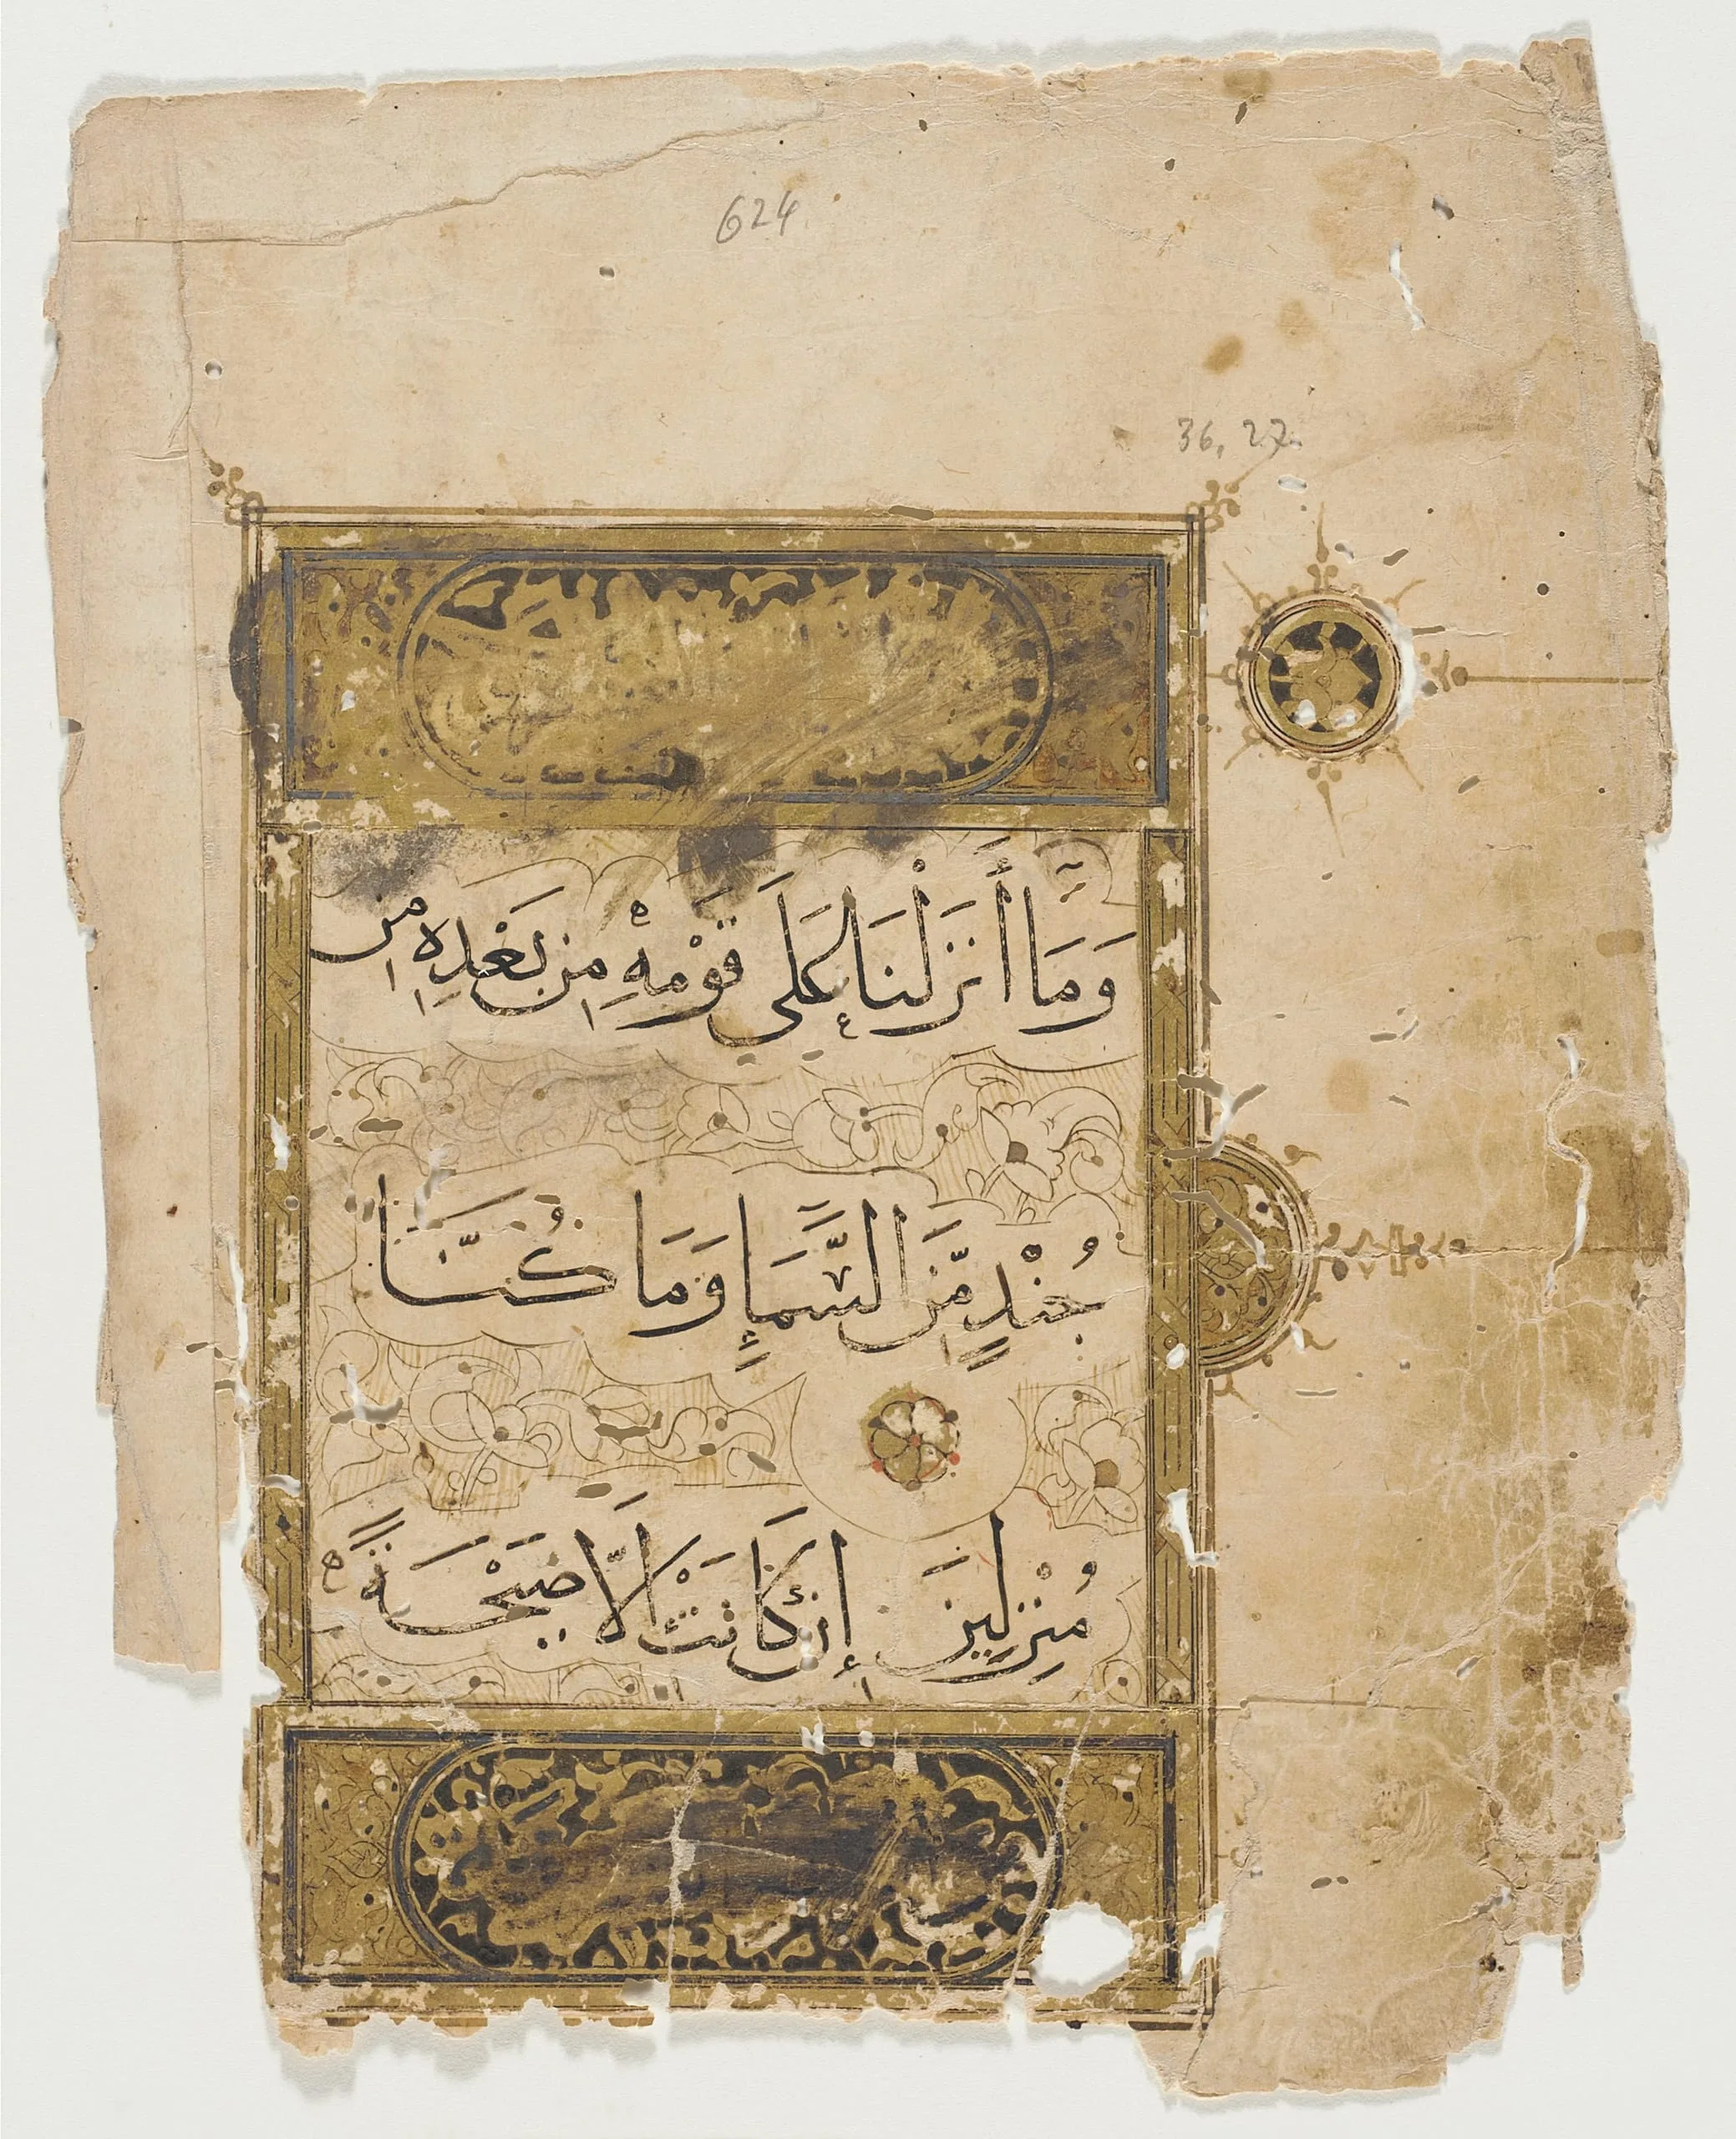 624
36, 27
وَمَآ أَنزَلْنَا عَلَىٰ قَوْمِهِۦ مِنۢ بَعْدِهِۦ مِن
جُندٍ مِّنَ السَّمَاۤءِ وَمَا كُنَّا
مُنزِلِينَ إِن كَانَتْ إِلَّا صَيْحَةً